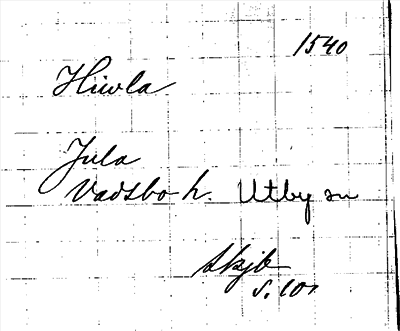 1540
Hiwla
Jula
Vadsbo h. Utby sn
Skjb
s. 101